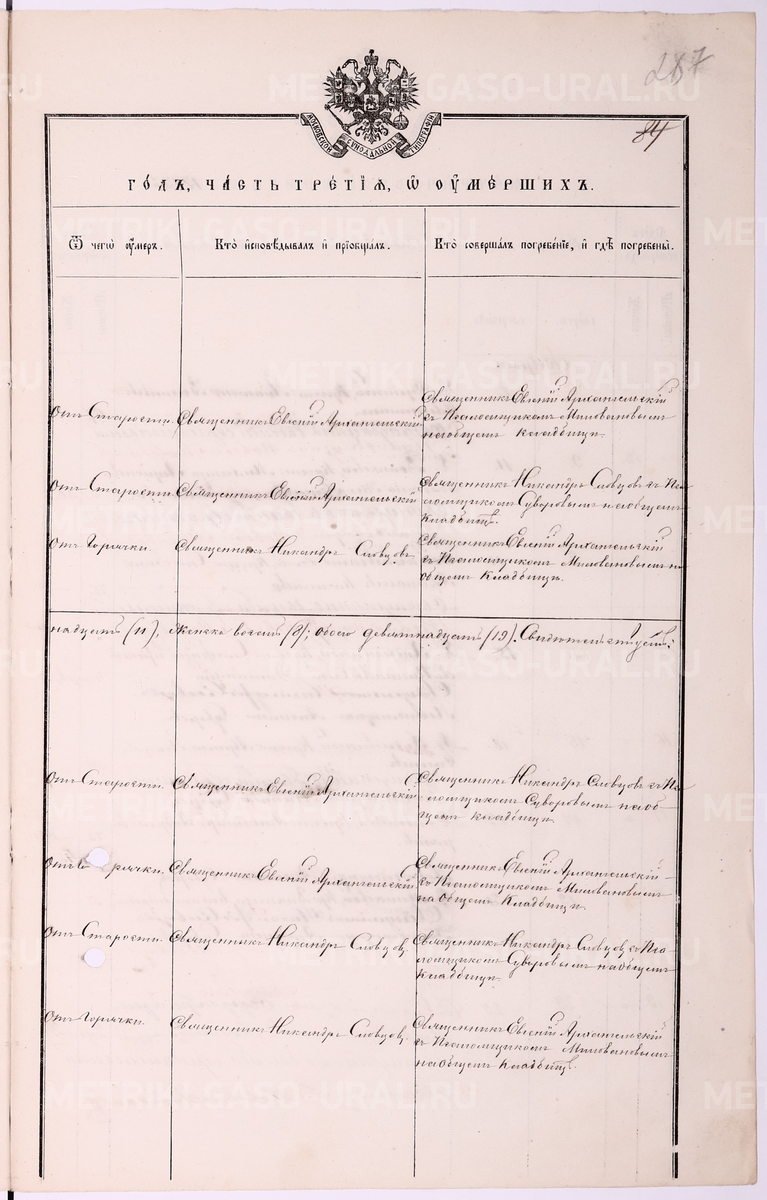 287
84
МОСКОВСКОЙ СѴНОДАЛЬНОЙ ТИПОГРАФІИ
ГО́ДЪ, ЧА́СТЬ ТРЕ́ТІѦ, Ѡ҆ ОУ҆МЕ́РШИХЪ.
Ѿ чегѡ̀ оу҆́меръ.
Кто̀ и҆сповѣ́дывалъ и҆ прїѡбща́лъ.
Кто̀ соверша́лъ погребе́нїе, и҆ гдѣ̀ погребены̀.
Отъ Старости.
Священникъ Евгеній Архангельскій
Священникъ Евгеній Архангельскій
съ Псаломщикомъ Миловановымъ
на общемъ кладбищѣ.
Отъ Старости
Священникъ Евгеній Архангельскій
Священникъ Никандръ Словцовъ съ Пса-
ломщикомъ Суворовымъ на общемъ
кладбищѣ.
Отъ Горячки.
Священникъ Никандръ Словцовъ
Священникъ Евгеній Архангельскій
съ Псаломщикомъ Миловановымъ на
общемъ Кладбищѣ.
надцать (11), женска восемь (8); обоего девятнадцать (19).
Отъ Старости.
Священникъ Евгеній Архангельскій
Священникъ Никандръ Словцовъ съ Пса-
ломщикомъ Суворовымъ на об-
щемъ кладбищѣ.
Отъ Горячки.
Священникъ Евгеній Архангельскій
Священникъ Евгеній Архангельскій
съ Псаломщикомъ Миловановымъ
на общемъ Кладбищѣ.
Отъ Старости.
Священникъ Никандръ Словцовъ
Священникъ Никандръ Словцовъ съ Пса-
ломщикомъ Суворовымъ на общемъ
Кладбищѣ.
Отъ Горячки.
Священникъ Никандръ Словцовъ
Священникъ Евгеній Архангельскій
съ Псаломщикомъ Миловановымъ
на общемъ Кладбищѣ.
METRIKI.GASO-URAL.RU